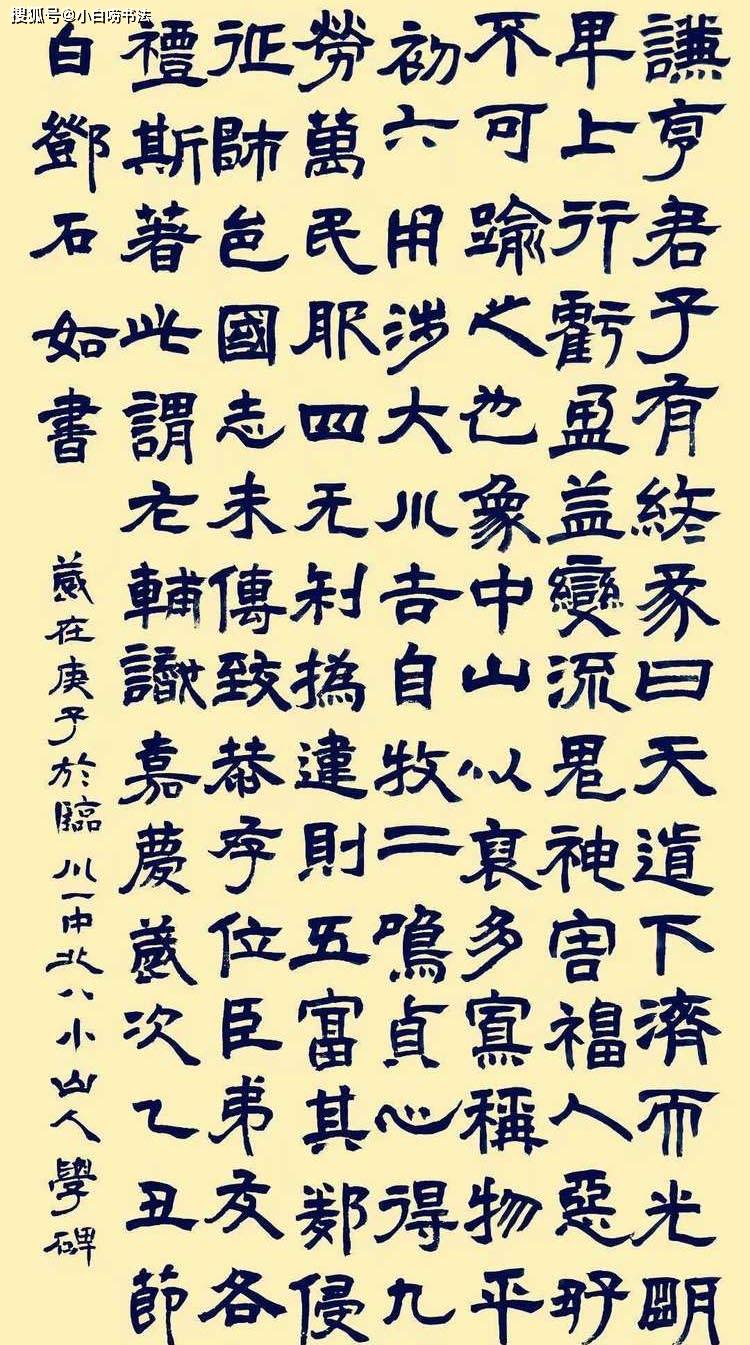 搜狐号@小白唠书法
謙亨君子有終彖曰天道下濟而光明
卑上行虧盈益變流鬼神害福人惡好
不可踰之也象中山以裒多寡稱物平
初六用涉大川吉自牧二鳴貞心得九
勞萬民服四无利撝違則五富其鄰侵
征師邑國志未傳致恭存位臣弟友各
禮斯著此謂左輔識嘉慶歲次乙丑節
白鄧石如書
歲在庚子於臨川一中北八小山人學碑